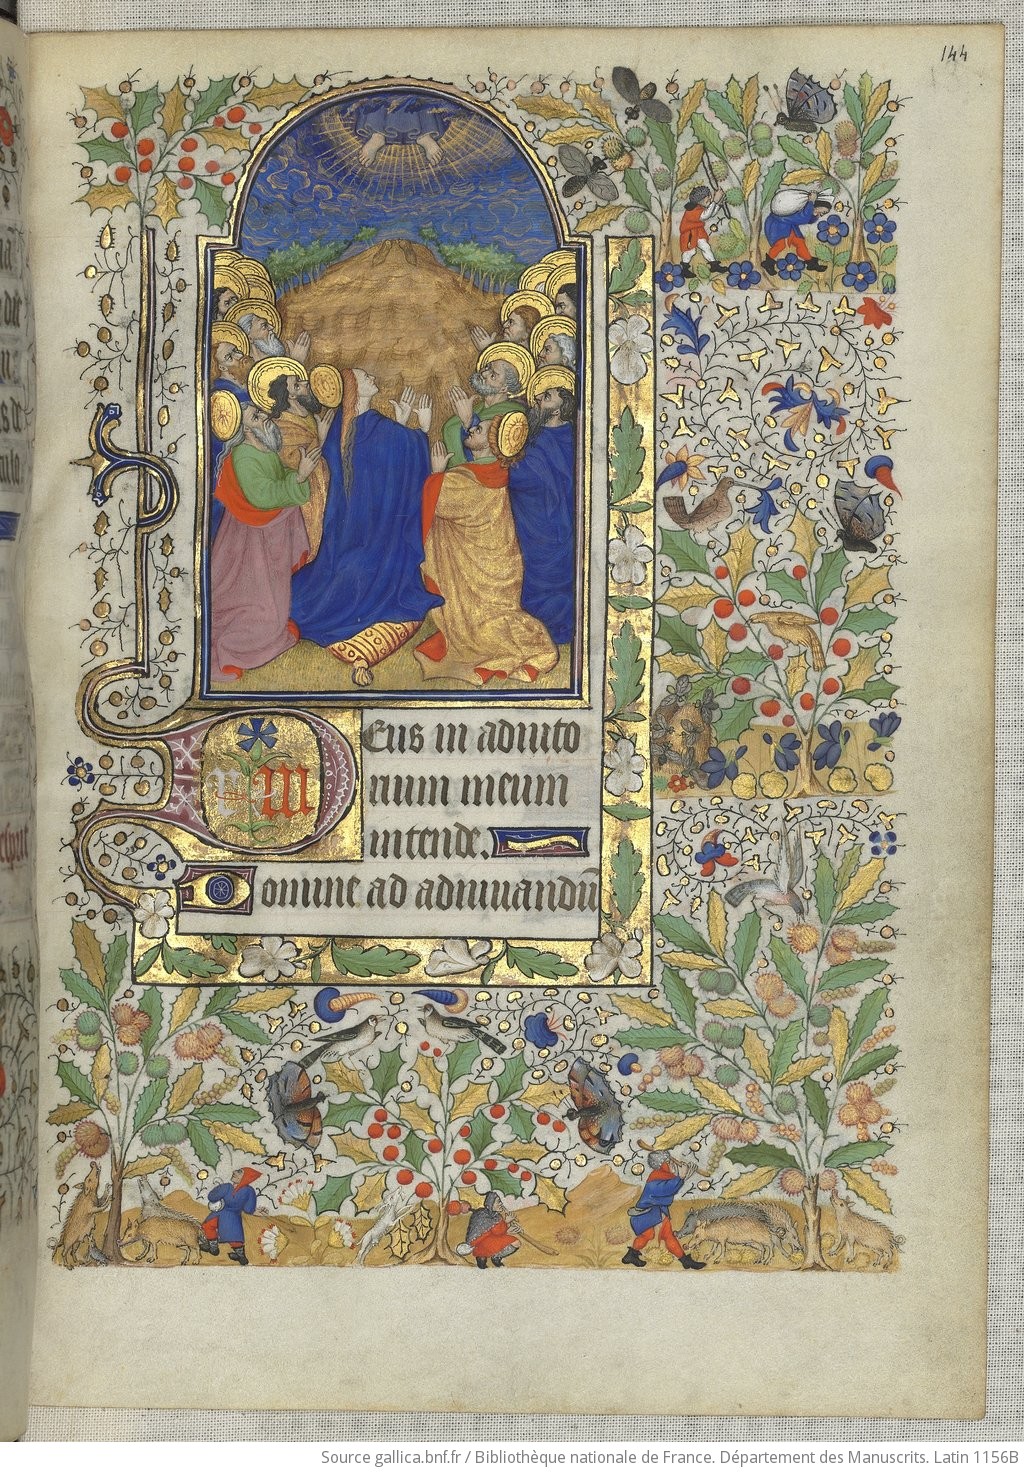 144
Deus in adiuto
rium meum
intende.
Domine ad adiuuandū
Source gallica.bnf.fr / Bibliothèque nationale de France. Département des Manuscrits. Latin 1156B